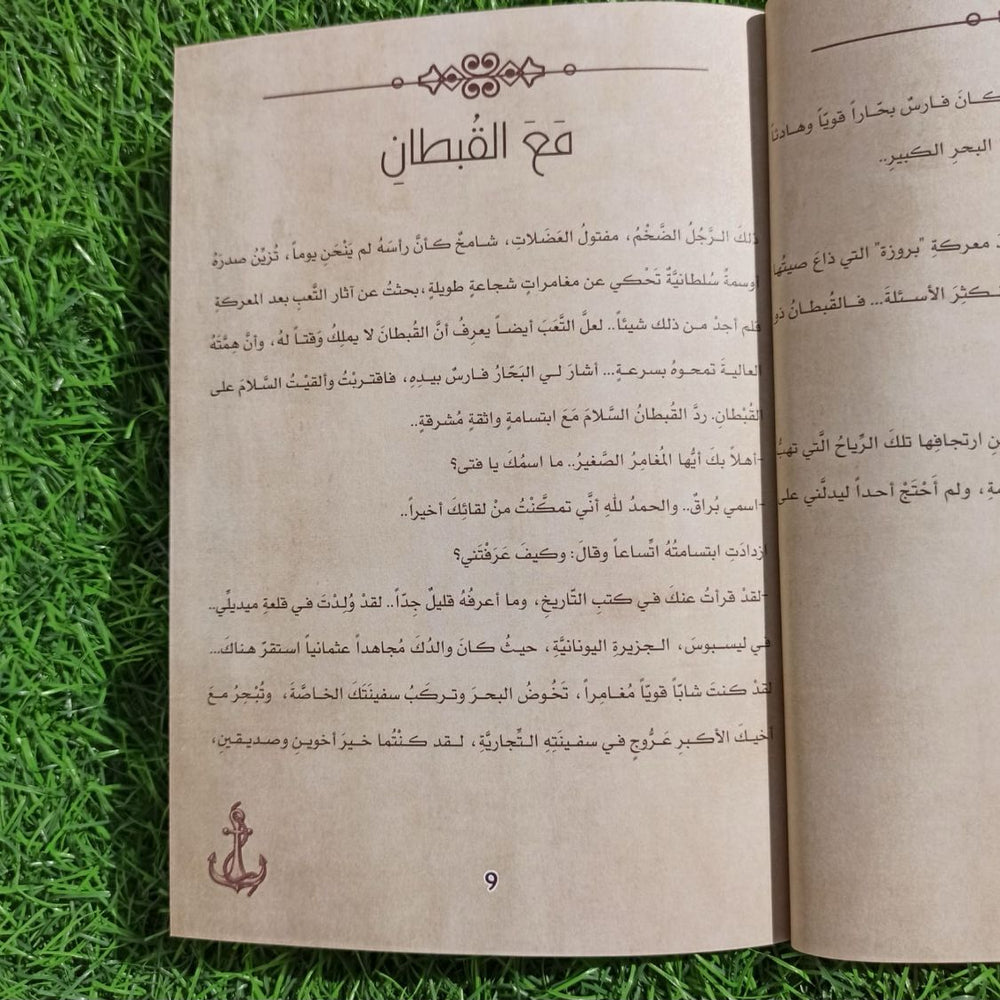 كانَ فارسٌ بحّاراً قويّاً وهادئاً
البحرِ الكبيرِ..
معركةِ "بروزة" التي ذاعَ صيتُها
الأسئلةَ... فالقُبطانُ ذو
ارتجافِها تلكَ الرِّياحُ الَّتي تهبُّ
ولم أَحْتَجْ أحداً ليدلَّني على
مَعَ القُبطانِ
ذلكَ الرَّجُلُ الضَّخْمُ، مفتولُ العَضَلاتِ، شامخٌ كأنَّ رأسَهُ لم يَنْحَنِ يوماً، تُزيِّنُ صدرَهُ
أوسمةٌ سُلطانيَّةٌ تَحْكي عن مغامراتٍ شجاعةٍ طويلةٍ، بحثتُ عن آثارِ التَّعبِ بعد المعركةِ
فلم أجدْ من ذلك شيئاً.. لعلَّ التَّعَبَ أيضاً يعرِفُ أنَّ القُبطانَ لا يملِكُ وَقتاً لهُ، وأنَّ هِمَّتَهُ
العاليةَ تمحوهُ بسرعةٍ... أشارَ لي البَحّارُ فارسٌ بيدِهِ، فاقتربْتُ وألقيْتُ السَّلامَ على
القُبْطانِ. ردَّ القُبطانُ السَّلامَ مَعَ ابتسامةٍ واثقةٍ مُشرقةٍ..
-أهلاً بكَ أيُّها المُغامرُ الصَّغيرُ.. ما اسمُكَ يا فتى؟
-اسمي بُراقٌ.. والحمدُ للهِ أنَّي تمكَّنْتُ منْ لقائِكَ أخيراً..
ازدادَتِ ابتسامتُهُ اتِّساعاً وقالَ: وكيفَ عَرَفْتَني؟
-لقدْ قرأتُ عنكَ في كتبِ التّاريخِ، وما أعرفُهُ قليلٌ جِدّاً.. لقدْ وُلِدْتَ في قلعةِ ميديلّي..
في ليسبوسَ، الجزيرةِ اليونانيَّةِ، حيثُ كانَ والدُكَ مُجاهداً عثمانياً استقرّ هناكَ...
لقدْ كنتَ شابّاً قويّاً مُغامِراً، تَخُوضُ البحرَ وتركَبُ سفينَتَكَ الخاصَّةَ، وتُبْحِرُ معَ
أخيكَ الأكبرِ عَرُّوجٍ في سفينَتِهِ التِّجاريَّةِ، لقد كنْتُما خيرَ أخوينِ وصديقينِ،
٩